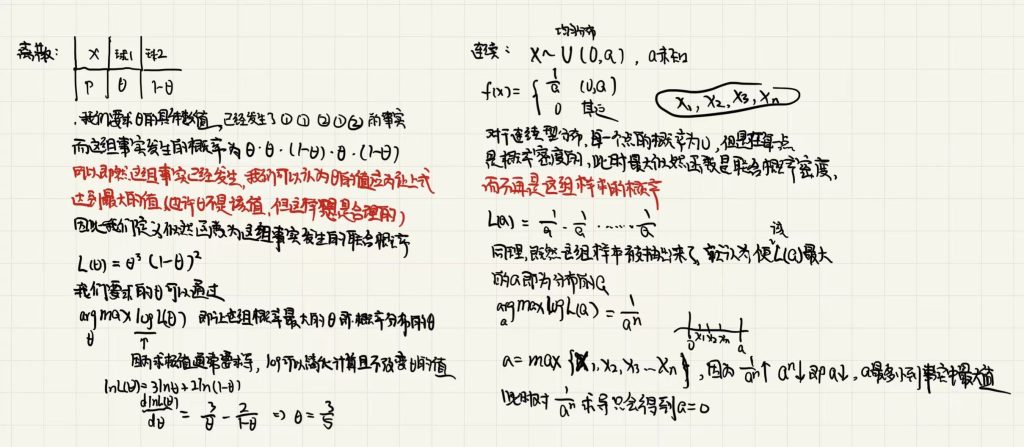 离散:
X 球1 球2
P θ 1-θ
我们要求θ的具体数值,已经发生了①①②①②的事实
而这组事实发生的概率为θ·θ·(1-θ)·θ·(1-θ)
所以既然这组事实已经发生,我们可以认为θ的值应为让上式
达到最大的值(也许θ不是该值,但这样想是合理的)
因此我们定义似然函数为这组事实发生的联合概率
L(θ) = θ³(1-θ)²
我们要求的θ可以通过
arg max log L(θ) 即让这组概率最大的θ即概率分布的θ
θ ↑
因为求极值通常要求导,log可以简化计算且不改变θ的值
lnL(θ) = 3lnθ + 2ln(1-θ)
dlnL(θ)/dθ = 3/θ - 2/(1-θ) => θ = 3/5
均匀分布
连续: X ~ U(0,a),a未知
f(x) = { 1/a (0,a)
0 其它
X₁, X₂, X₃, Xn
对于连续型分布,每一个点的概率为0,但是在每点
是概率密度的,此时最大似然函数是联合概率密度,
而不再是这组样本的概率
L(a) = 1/a · 1/a · ..... · 1/a
同理,既然这组样本被抽出来了,就认为使该L(a)最大
的a即为分布的a
arg max log L(a) = 1/aⁿ
a
0 x₁ x₂ xn a
a = max {X₁, X₂, X₃ ... Xn},因为 1/aⁿ↑ aⁿ↓ 即a↓,a最多小到事实中最大值
此时对 1/aⁿ 求导只会得到a=0